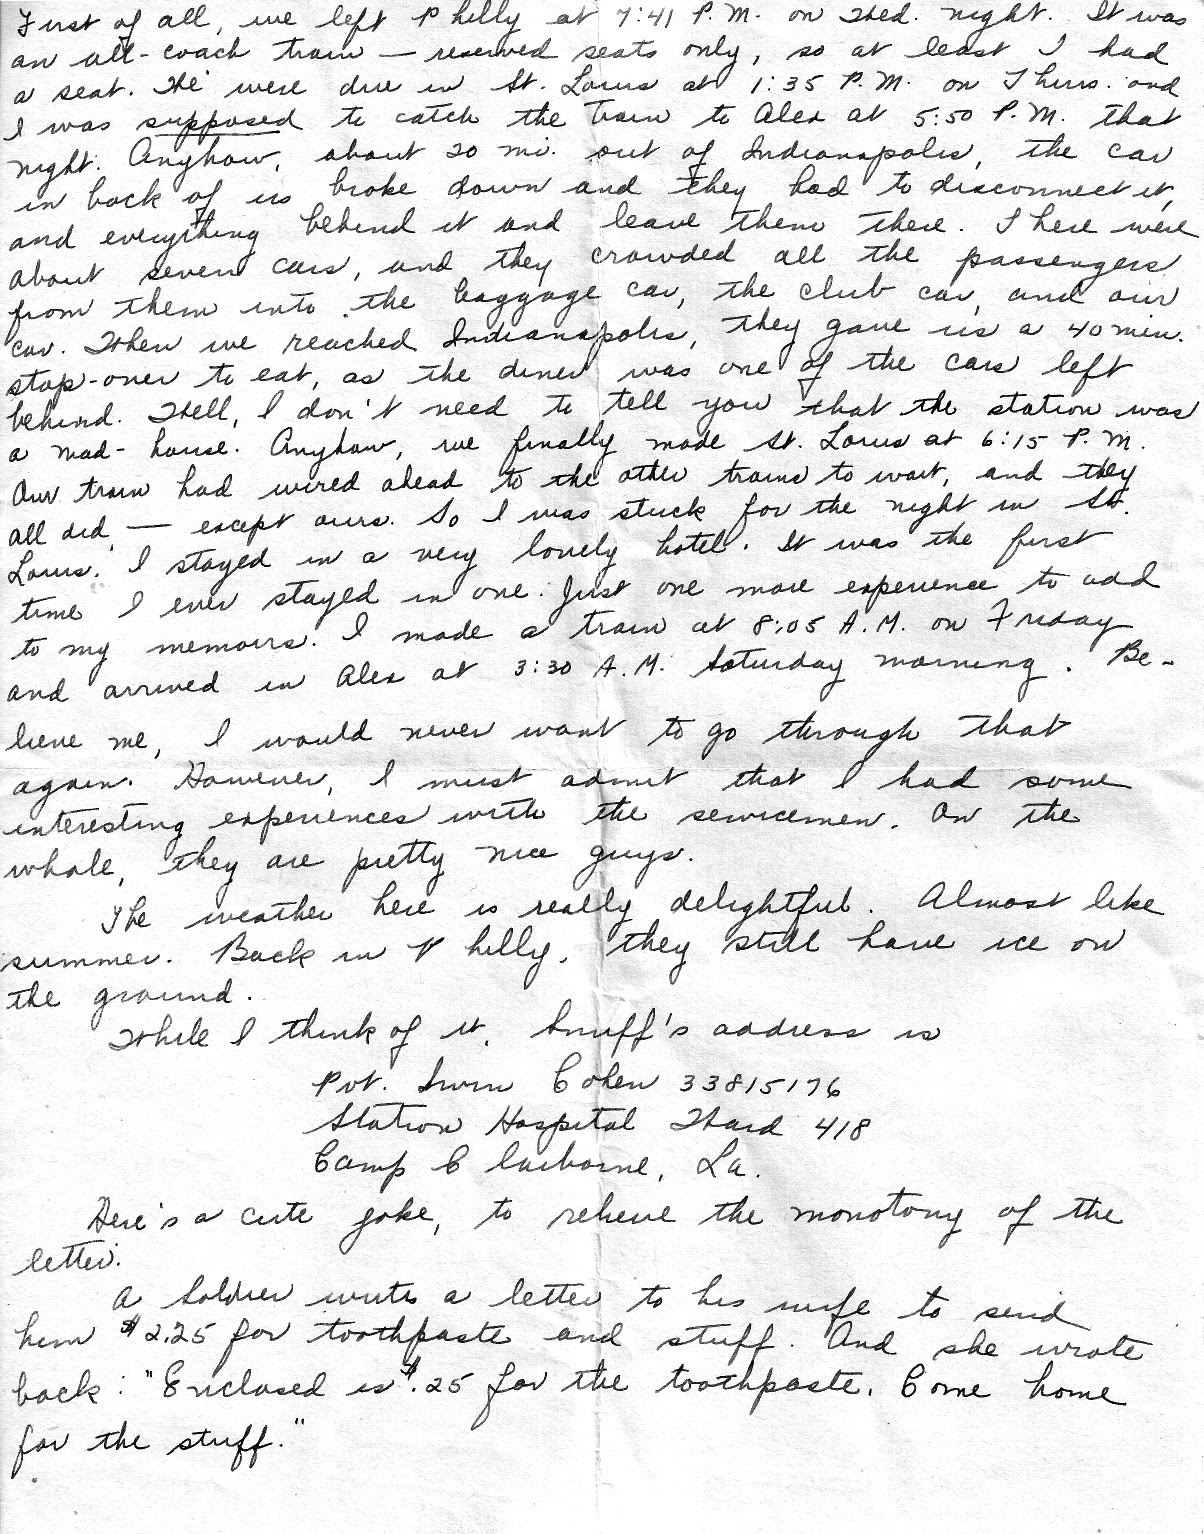 First of all, we left Philly at 7:41 P.M. on Wed. night. It was
an all-coach train — reserved seats only, so at least I had
a seat. We were due in St. Louis at 1:35 P.M. on Thurs. and
I was supposed to catch the train to Alex at 5:50 P.M. that
night. Anyhow, about 20 mi. out of Indianapolis, the car
in back of us broke down and they had to disconnect it,
and everything behind it and leave them there. There were
about seven cars, and they crowded all the passengers
from them into the baggage car, the club car, and our
car. When we reached Indianapolis, they gave us a 40 min.
stop-over to eat, as the diner was one of the cars left
behind. Well, I don't need to tell you that the station was
a mad-house. Anyhow, we finally made St. Louis at 6:15 P.M.
Our train had wired ahead to the other trains to wait, and they
all did, — except ours. So I was stuck for the night in St.
Louis. I stayed in a very lovely hotel. It was the first
time I ever stayed in one. Just one more experience to add
to my memoirs. I made a train at 8:05 A.M. on Friday
and arrived in Alex at 3:30 A.M. Saturday morning. Be-
lieve me, I would never want to go through that
again. However, I must admit that I had some
interesting experiences with the servicemen. On the
whole, they are pretty nice guys.
The weather here is really delightful. Almost like
summer. Back in Philly, they still have ice on
the ground.
While I think of it, Snuff's address is
Pvt. Irvin Cohen 33815176
Station Hospital Ward 418
Camp Claiborne, La.
Here's a cute joke, to relieve the monotony of the
letter.
A soldier writes a letter to his wife to send
him $2.25 for toothpaste and stuff. And she wrote
back: "Enclosed is $.25 for the toothpaste. Come home
for the stuff."